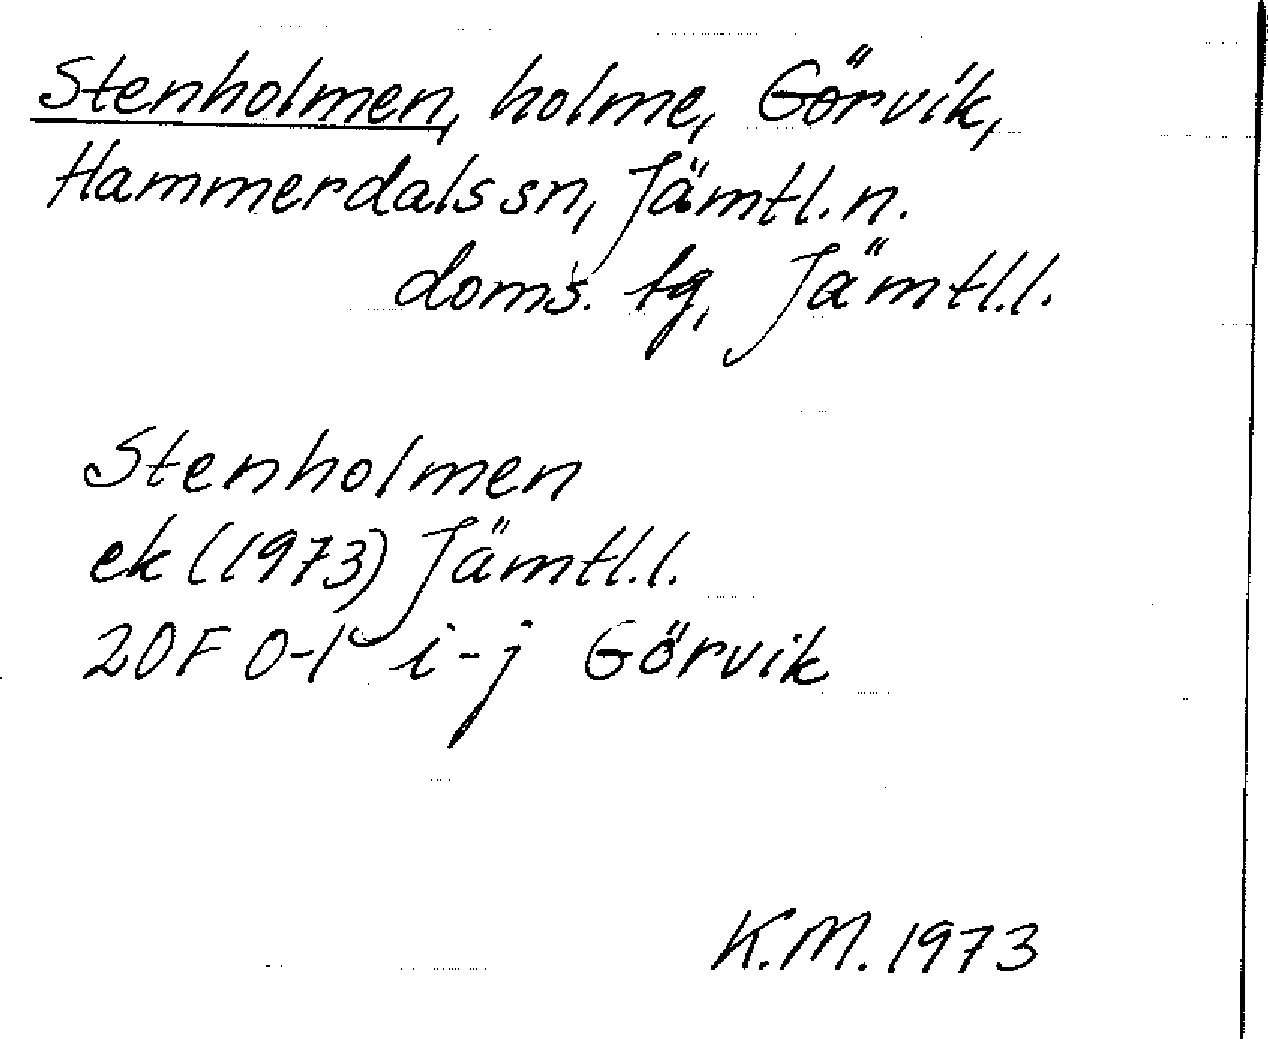 Stenholmen, holme, Görvik,
Hammerdals sn, Jämtl. n.
doms. tg, Jämtl.l.
Stenholmen
ek (1973) Jämtl.l.
20F 0-1 i-j Görvik
K.M. 1973